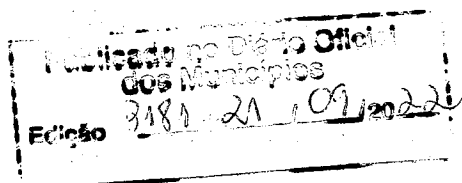 Publicado no Diário Oficial
dos Municípios
Edição 3181 21 / 09 / 2022